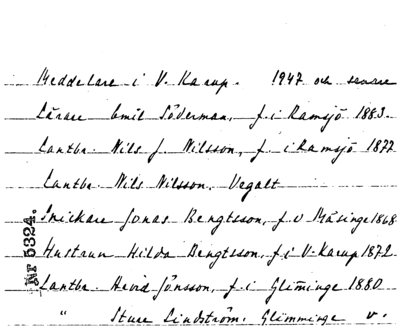 Meddelare i V. Karup. 1947 och senare
Lärare Emil Söderman, f. i Ramsjö 1883.
Lantbr. Nils J. Nilsson, f. i Ramsjö 1877
Lantbr. Nils Nilsson, Vegalt
Snickare Jonas Bengtsson, f. o Båsinge 1868
Hustrun Hilda Bengtsson, f. i V. Karup 1872
Lantbr. Arvid Jönsson, f. i Glimminge 1880
" Sture Lindström. Glimminge v.
Nr 5324.